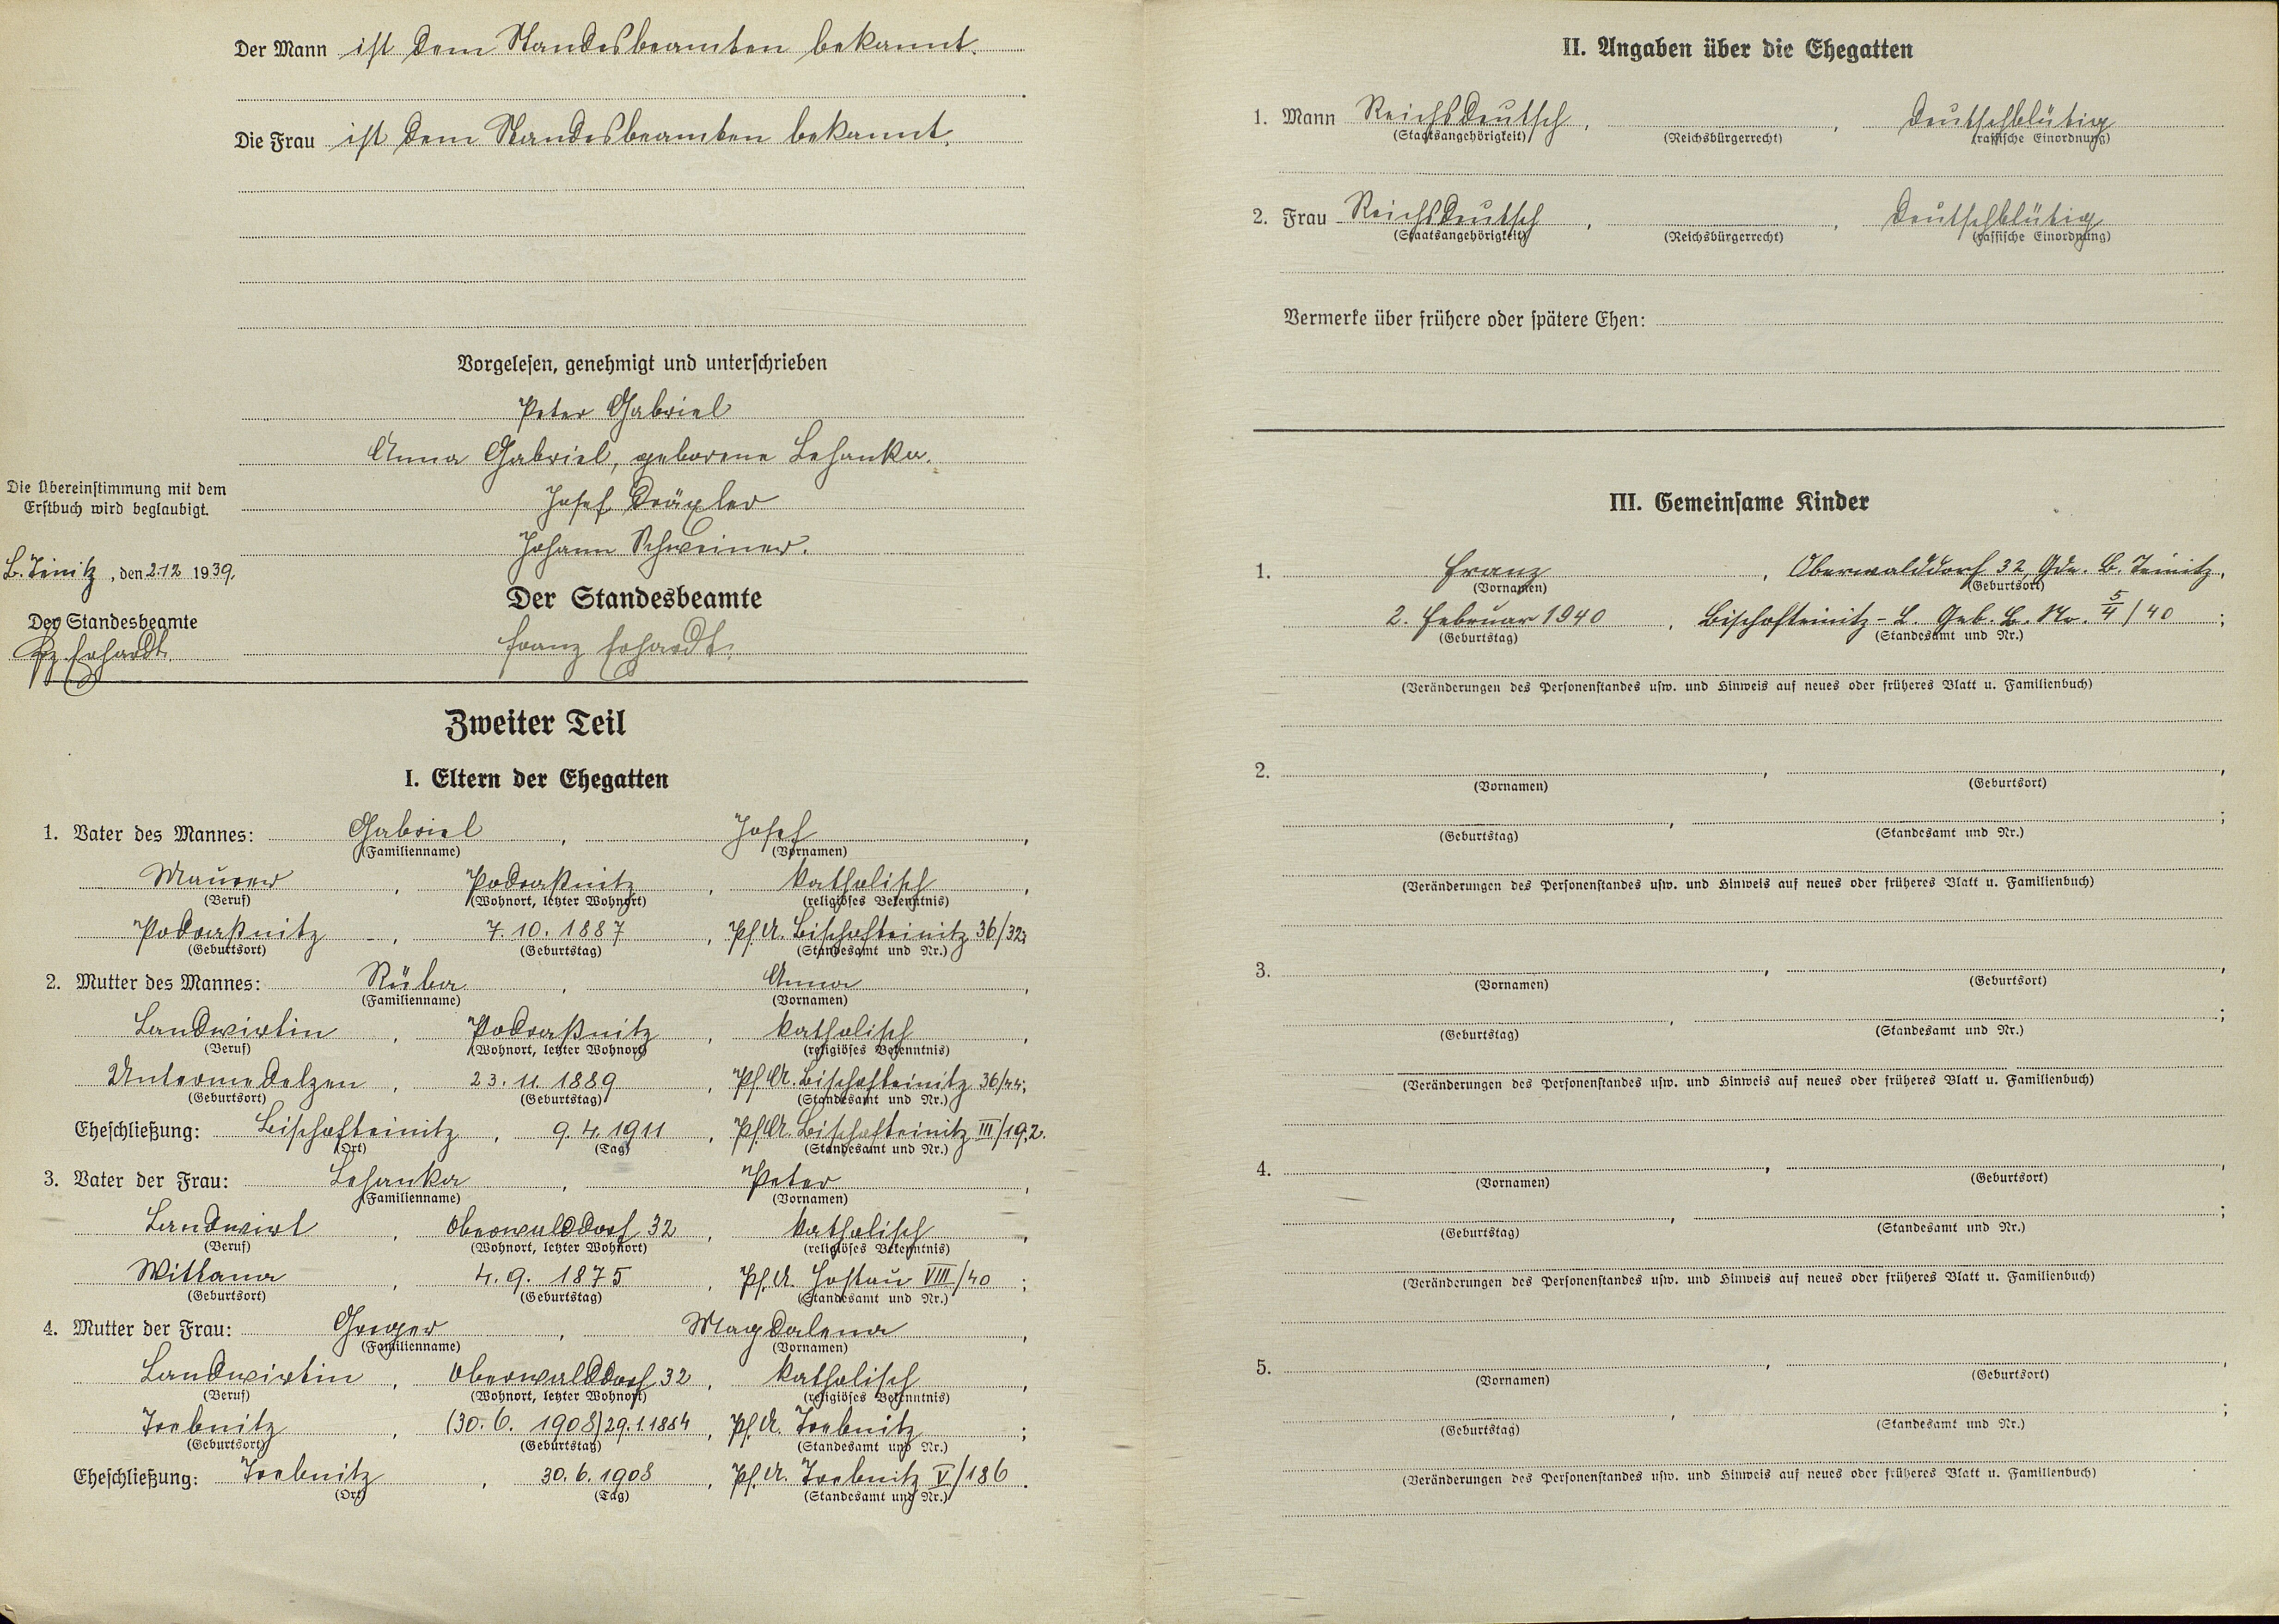 Der Mann ist dem Standesbeamten bekannt.
Die Frau ist dem Standesbeamten bekannt.
Vorgelesen, genehmigt und unterschrieben
Peter Gabriel
Anna Gabriel, geborene Lehanka.
Josef Dräxler
Johann Schweiner.
Die Übereinstimmung mit dem
Erstbuch wird beglaubigt.
B. Teinitz, den 2.12 1939.
Der Standesbeamte
Fz. Erhardt.
Der Standesbeamte
Franz Erhardt.
Zweiter Teil
I. Eltern der Ehegatten
1. Vater des Mannes: Gabriel, Josef,
(Familienname) (Vornamen)
Maurer, Podraßnitz, katholisch,
(Beruf) (Wohnort, letzter Wohnort) (religiöses Bekenntnis)
Podraßnitz, 7.10.1887, Pf.A. Bischofteinitz 36/32;
(Geburtsort) (Geburtstag) (Standesamt und Nr.)
2. Mutter des Mannes: Rüba, Anna,
(Familienname) (Vornamen)
Landwirtin, Podraßnitz, katholisch,
(Beruf) (Wohnort, letzter Wohnort) (religiöses Bekenntnis)
Untermedelzen, 23.11.1889, Pf.A. Bischofteinitz 36/44;
(Geburtsort) (Geburtstag) (Standesamt und Nr.)
Eheschließung: Bischofteinitz, 9.4.1911, Pf.A. Bischofteinitz III/192.
(Ort) (Tag) (Standesamt und Nr.)
3. Vater der Frau: Lehanka, Peter,
(Familienname) (Vornamen)
Landwirt, Oberwalddorf 32, katholisch,
(Beruf) (Wohnort, letzter Wohnort) (religiöses Bekenntnis)
Wittana, 4.9.1875, Pf.A. Hostau VIII/40;
(Geburtsort) (Geburtstag) (Standesamt und Nr.)
4. Mutter der Frau: Greger, Magdalena,
(Familienname) (Vornamen)
Landwirtin, Oberwalddorf 32, katholisch,
(Beruf) (Wohnort, letzter Wohnort) (religiöses Bekenntnis)
Trebnitz, (30.6.1908) 29.1.1884, Pf.A. Trebnitz;
(Geburtsort) (Geburtstag) (Standesamt und Nr.)
Eheschließung: Trebnitz, 30.6.1908, Pf.A. Trebnitz V/186.
(Ort) (Tag) (Standesamt und Nr.)
II. Angaben über die Ehegatten
1. Mann Reichsdeutsch, , Deutschblütig
(Staatsangehörigkeit) (Reichsbürgerrecht) (rassische Einordnung)
2. Frau Reichsdeutsch, , Deutschblütig
(Staatsangehörigkeit) (Reichsbürgerrecht) (rassische Einordnung)
Vermerke über frühere oder spätere Ehen:
III. Gemeinsame Kinder
1. Franz, Oberwalddorf 32, Gde. B. Teinitz,
(Vornamen) (Geburtsort)
2. Februar 1940, Bischofteinitz-L. Geb. B. Nr. 5/4/40;
(Geburtstag) (Standesamt und Nr.)
(Veränderungen des Personenstandes usw. und Hinweis auf neues oder früheres Blatt u. Familienbuch)
2. , ,
(Vornamen) (Geburtsort)
, ;
(Geburtstag) (Standesamt und Nr.)
(Veränderungen des Personenstandes usw. und Hinweis auf neues oder früheres Blatt u. Familienbuch)
3. , ,
(Vornamen) (Geburtsort)
, ;
(Geburtstag) (Standesamt und Nr.)
(Veränderungen des Personenstandes usw. und Hinweis auf neues oder früheres Blatt u. Familienbuch)
4. , ,
(Vornamen) (Geburtsort)
, ;
(Geburtstag) (Standesamt und Nr.)
(Veränderungen des Personenstandes usw. und Hinweis auf neues oder früheres Blatt u. Familienbuch)
5. , ,
(Vornamen) (Geburtsort)
, ;
(Geburtstag) (Standesamt und Nr.)
(Veränderungen des Personenstandes usw. und Hinweis auf neues oder früheres Blatt u. Familienbuch)